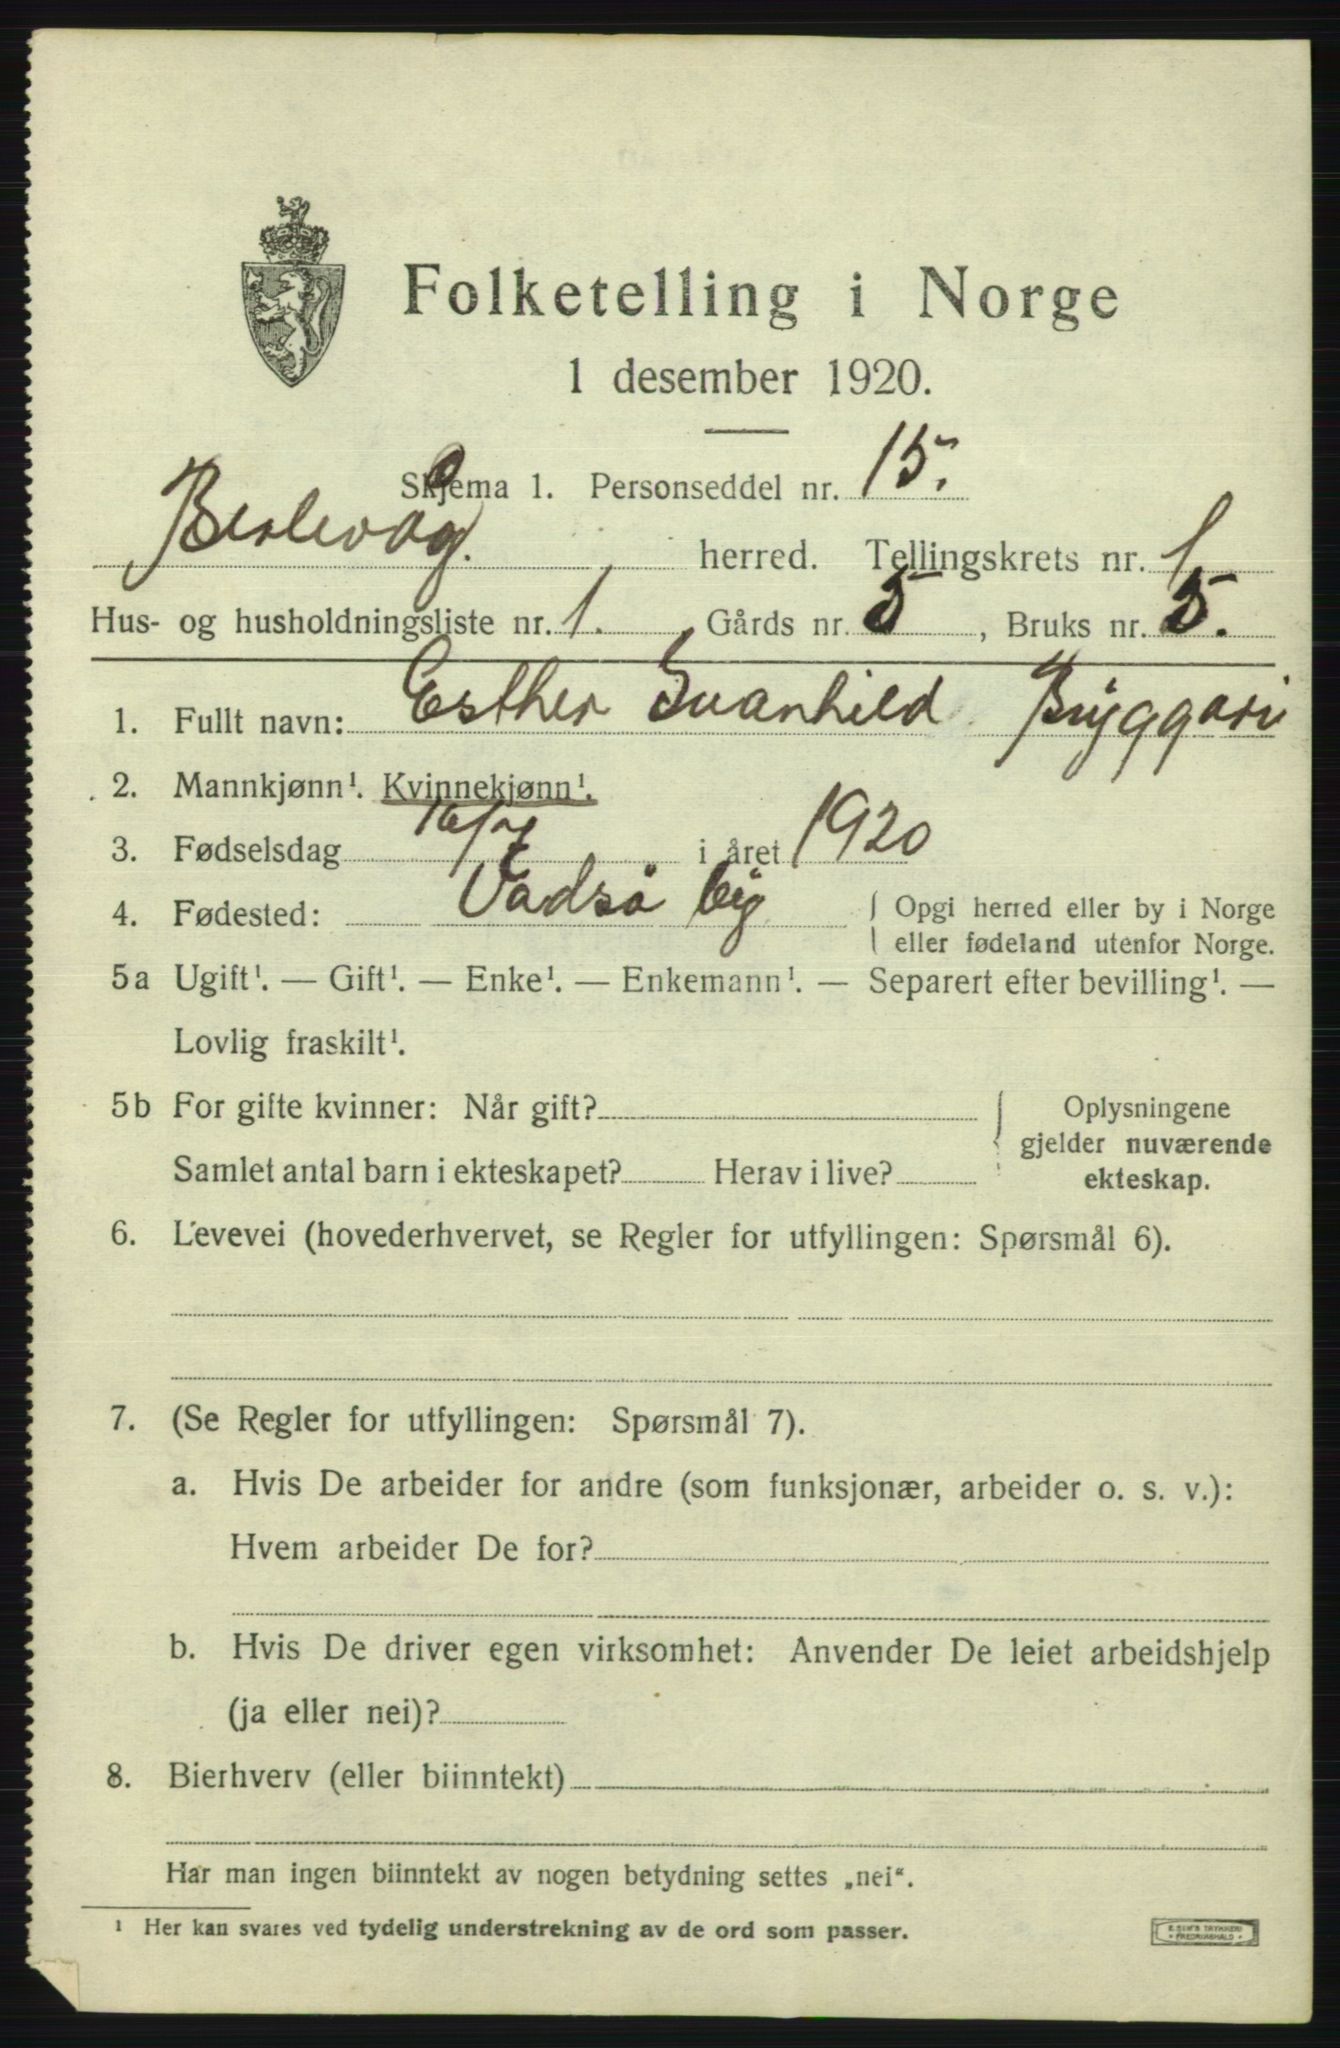 Folketelling i Norge
1 desember 1920.
Skjema 1. Personseddel nr. 15.
Berlevåg. herred. Tellingskrets nr. 1
Hus- og husholdningsliste nr. 1. , Gårds nr. 5 , Bruks nr. 5.
1. Fullt navn: Esther Svanhild Byggari
2. Mannkjønn¹. Kvinnekjønn¹.
3. Fødselsdag 16/7 i året 1920
4. Fødested: Vadsö by { Opgi herred eller by i Norge
eller fødeland utenfor Norge.
5a Ugift¹. — Gift¹. — Enke¹. — Enkemann¹. — Separert efter bevilling¹. —
Lovlig fraskilt¹.
5b For gifte kvinner: Når gift? { Oplysningene
gjelder nuværende
Samlet antal barn i ekteskapet? Herav i live? ekteskap.
6. Levevei (hovederhvervet, se Regler for utfyllingen: Spørsmål 6).
7. (Se Regler for utfyllingen: Spørsmål 7).
a. Hvis De arbeider for andre (som funksjonær, arbeider o. s. v.):
Hvem arbeider De for?
b. Hvis De driver egen virksomhet: Anvender De leiet arbeidshjelp
(ja eller nei)?
8. Bierhverv (eller biinntekt)
Har man ingen biinntekt av nogen betydning settes „nei“.
¹ Her kan svares ved tydelig understrekning av de ord som passer.
E. SEM'S TRYKKERI
FREDRIKSHALD